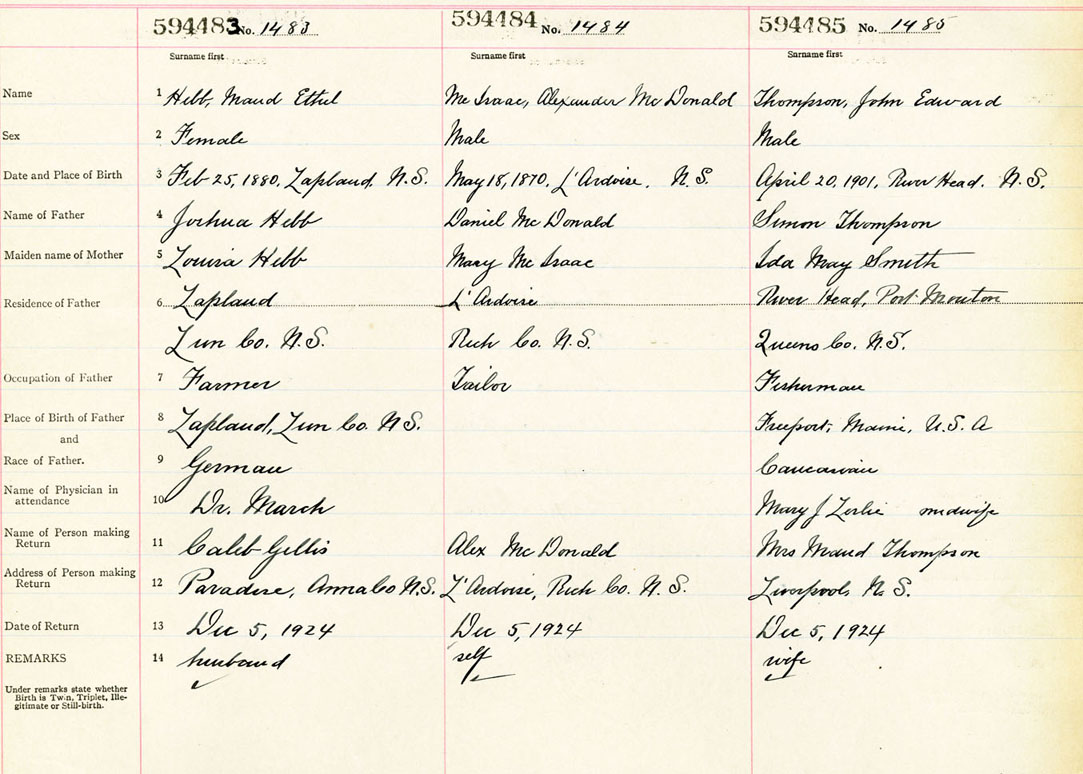 594483 No. 1483 594484 No. 1484 594485 No. 1485
Surname first Surname first Surname first
Name 1 Hebb, Maud Ethel Mc Isaac, Alexander Mc Donald Thompson, John Edward
Sex 2 Female Male Male
Date and Place of Birth 3 Feb 25, 1880, Lapland, N.S. May 18, 1870, L'Ardoise, N.S. April 20, 1901, River Head, N.S.
Name of Father 4 Joshua Hebb Daniel Mc Donald Simon Thompson
Maiden name of Mother 5 Louisa Hebb Mary Mc Isaac Ida May Smith
Residence of Father 6 Lapland L'Ardoise River Head, Port Mouton
Lun Co. N.S. Rich Co. N.S. Queens Co. N.S.
Occupation of Father 7 Farmer Tailor Fisherman
Place of Birth of Father 8 Lapland, Lun Co. N.S. Freeport, Maine, U.S.A
and
Race of Father. 9 German Caucasian
Name of Physician in
attendance 10 Dr. March Mary J Leslie midwife
Name of Person making
Return 11 Caleb Gillis Alex Mc Donald Mrs Maud Thompson
Address of Person making
Return 12 Paradise, Anna Co N.S. L'Ardoise, Rich Co. N.S. Liverpool, N.S.
Date of Return 13 Dec 5, 1924 Dec 5, 1924 Dec 5, 1924
REMARKS 14 husband self wife
Under remarks state whether
Birth is Twin, Triplet, Ille-
gitimate or Still-birth.